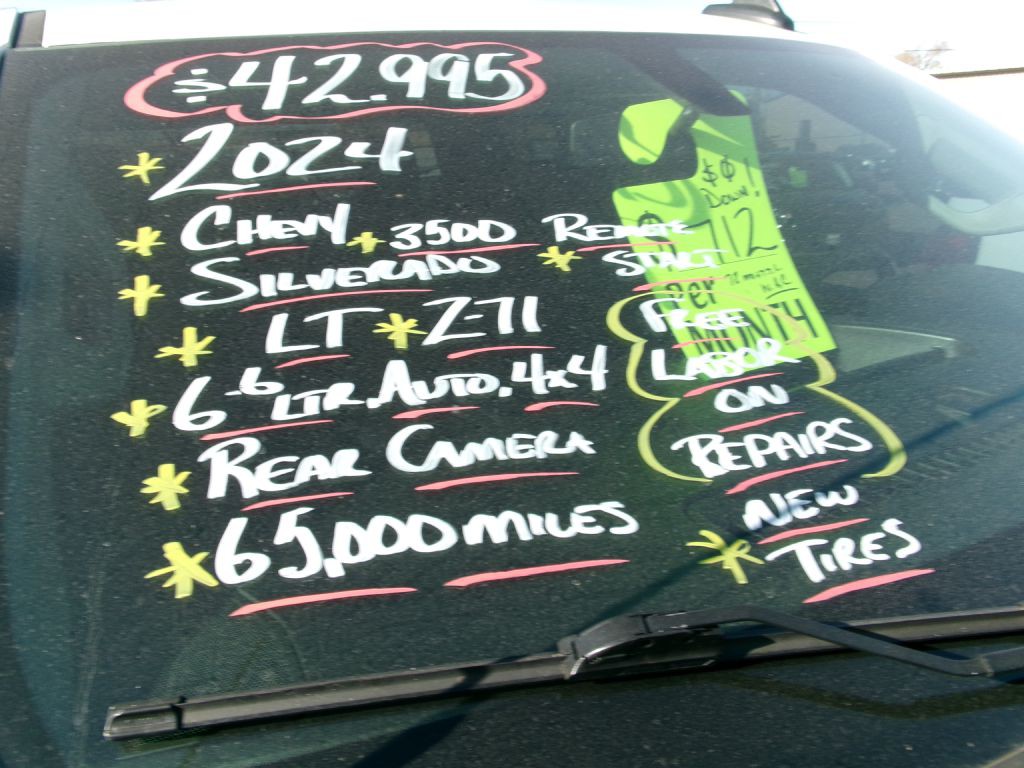 $42.995
2024
CHEVY * 3500
SILVERADO
LT * Z-71
6.6 LTR. AUTO. 4x4
REAR CAMERA
65,000 MILES
REMOTE
START
FREE
LABOR
ON
REPAIRS
NEW
TIRES
$0
DOWN!
712
per
MONTH